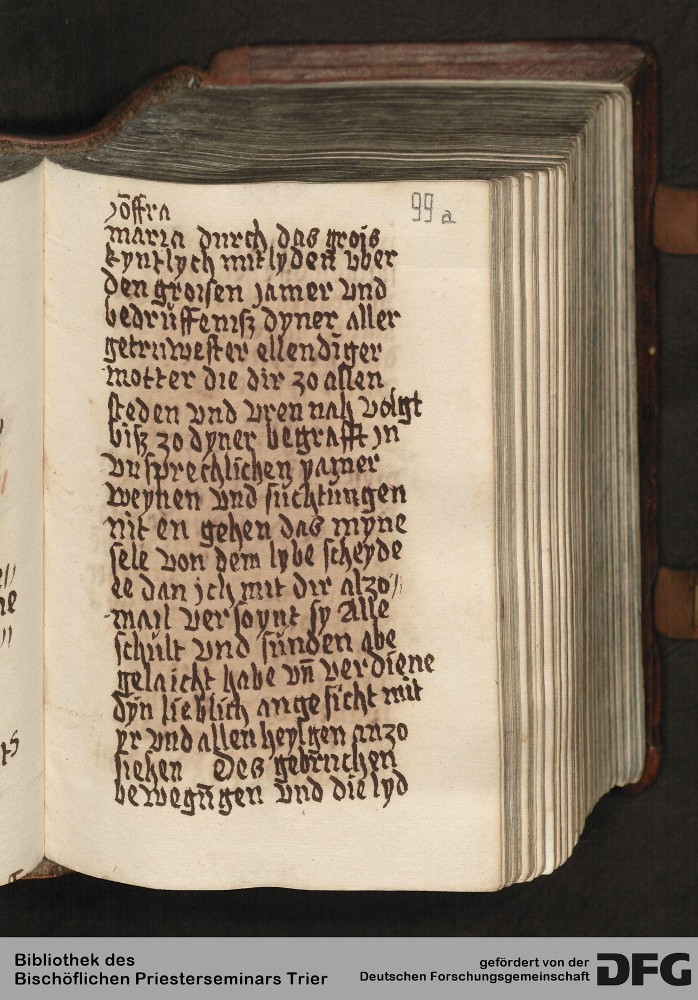 99 a
jōffra
maria durch das grois
kyntlych mitlyden vber
den groisen jamer vnd
bedruffenisz dyner aller
getruwester ellendiger
motter die dir zo allen
steden vnd vren nah volgt
bisz zo dyner begrafft jn
vnsprechlichen yamer
weynen vnd suchtungen
nit en gehen das myne
sele von dem lybe scheyde
ee dan jch mit dir alzo//
mail versoynt sy Alle
schult vnd sunden abe
gelaicht habe vn̄ verdiene
dyn lieblich angesicht mit
yr vnd allen heylgen anzo
siehen Des gebruchen
bewegūgen vnd die lyd
Bibliothek des
Bischöflichen Priesterseminars Trier
gefördert von der
Deutschen Forschungsgemeinschaft
DFG